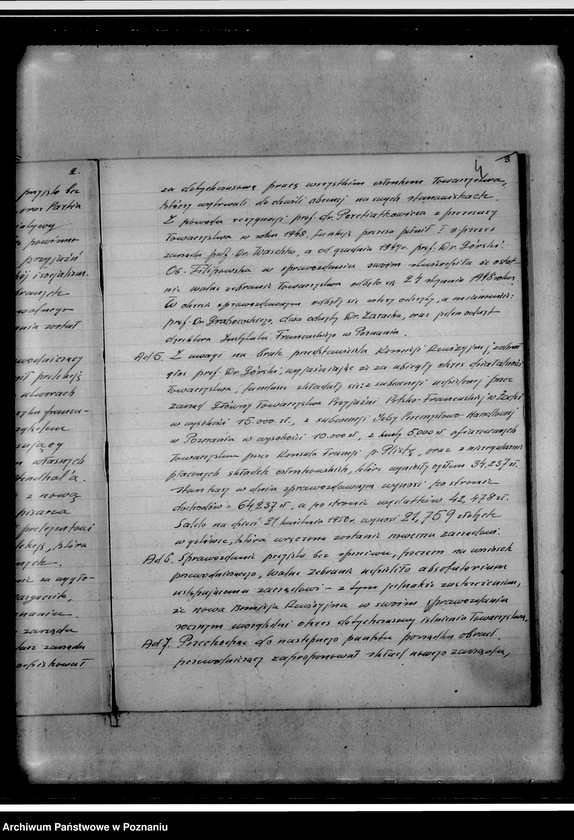 2.
przyjęto bez
oraz Partia
powinno
przyjaźń
kój i socjalizm.
zebranych
walnego
został
wodniczącej
prelekcję
utworach
francu-
sujący
własnych
Stendhal'a.
z nową
pisarza
prelegentowi
lekcję, która
nych.
za wygło-
naniu.
zarządu
tarz zarządu
4
3
za dotychczasową pracę wszystkim członkom Towarzystwa,
którzy wytrwali do chwili obecnej na swych stanowiskach.
Z powodu rezygnacji prof. dr. Peretiatkowicza z prezesury
Towarzystwa w roku 1948, funkcję prezesa pełnił I v-prezes
zarządu prof. Dr. Jvaschko, a od grudnia 1949 r. prof. Dr. Górski.
Ob. Filipowska w sprawozdaniu swoim stwierdziła że ostat-
nie walne zebranie Towarzystwa odbyło się 24 stycznia 1948 roku.
W okresie sprawozdawczym odbyły się cztery odczyty, a mianowicie:
prof. Dr. Grabowskiego, dwa odczyty Dr. Zaracha, oraz jeden odczyt
dyrektora Instytutu Francuskiego w Poznaniu.
Ad 5. Z uwagi na brak przedstawiciela Komisji Rewizyjnej, zabrał
głos prof. Dr. Górski, wyjaśniając że za ubiegły okres działalności
Towarzystwa, fundusze składały się z subwencji udzielonej przez
Zarząd Główny Towarzystwa Przyjaźni Polsko-Francuskiej w Łodzi
w wysokości 15.000 zł., z subwencji Izby Przemysłowo-Handlowej
w Poznaniu w wysokości 10.000 zł., z kwoty 5000 zł. ofiarowanych
Towarzystwu przez Konsula Francji p. oraz z nieregularnie
płaconych składek członkowskich, które wyniosły ogółem 34,237 zł.
Stan kasy w dniu sprawozdawczym wynosi po stronie
dochodów = 64,237 zł, a po stronie wydatków 42,478 zł.
Saldo na dzień 21 kwietnia 1950 r. wynosi 21,759 złotych
w gotówce, która wręczona zostanie nowemu zarządowi.
Ad 6. Sprawozdanie przyjęto bez sprzeciwu, poczem na wniosek
przewodniczącego, walne zebranie udzieliło absolutorium
ustępującemu zarządowi - z tym jednakże zastrzeżeniem,
że nowa Komisja Rewizyjna w swoim sprawozdaniu
rocznym uwzględni okres dotychczasowy istnienia Towarzystwa.
Ad 7. Przechodząc do następnego punktu porządku obrad,
przewodniczący zaproponował skład nowego zarządu,
Archiwum Państwowe w Poznaniu